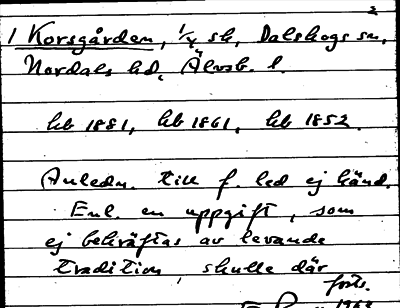 1 Korsgården, 1/4 sk, Dalskogs sn,
Nordals hd, Älvsb. l.
hb 1881, hb 1861, hb 1852.
Anledn. till f. led ej känd.
Enl. en uppgift, som
ej bekräftas av levande
tradition, skulle där
forts.
1968